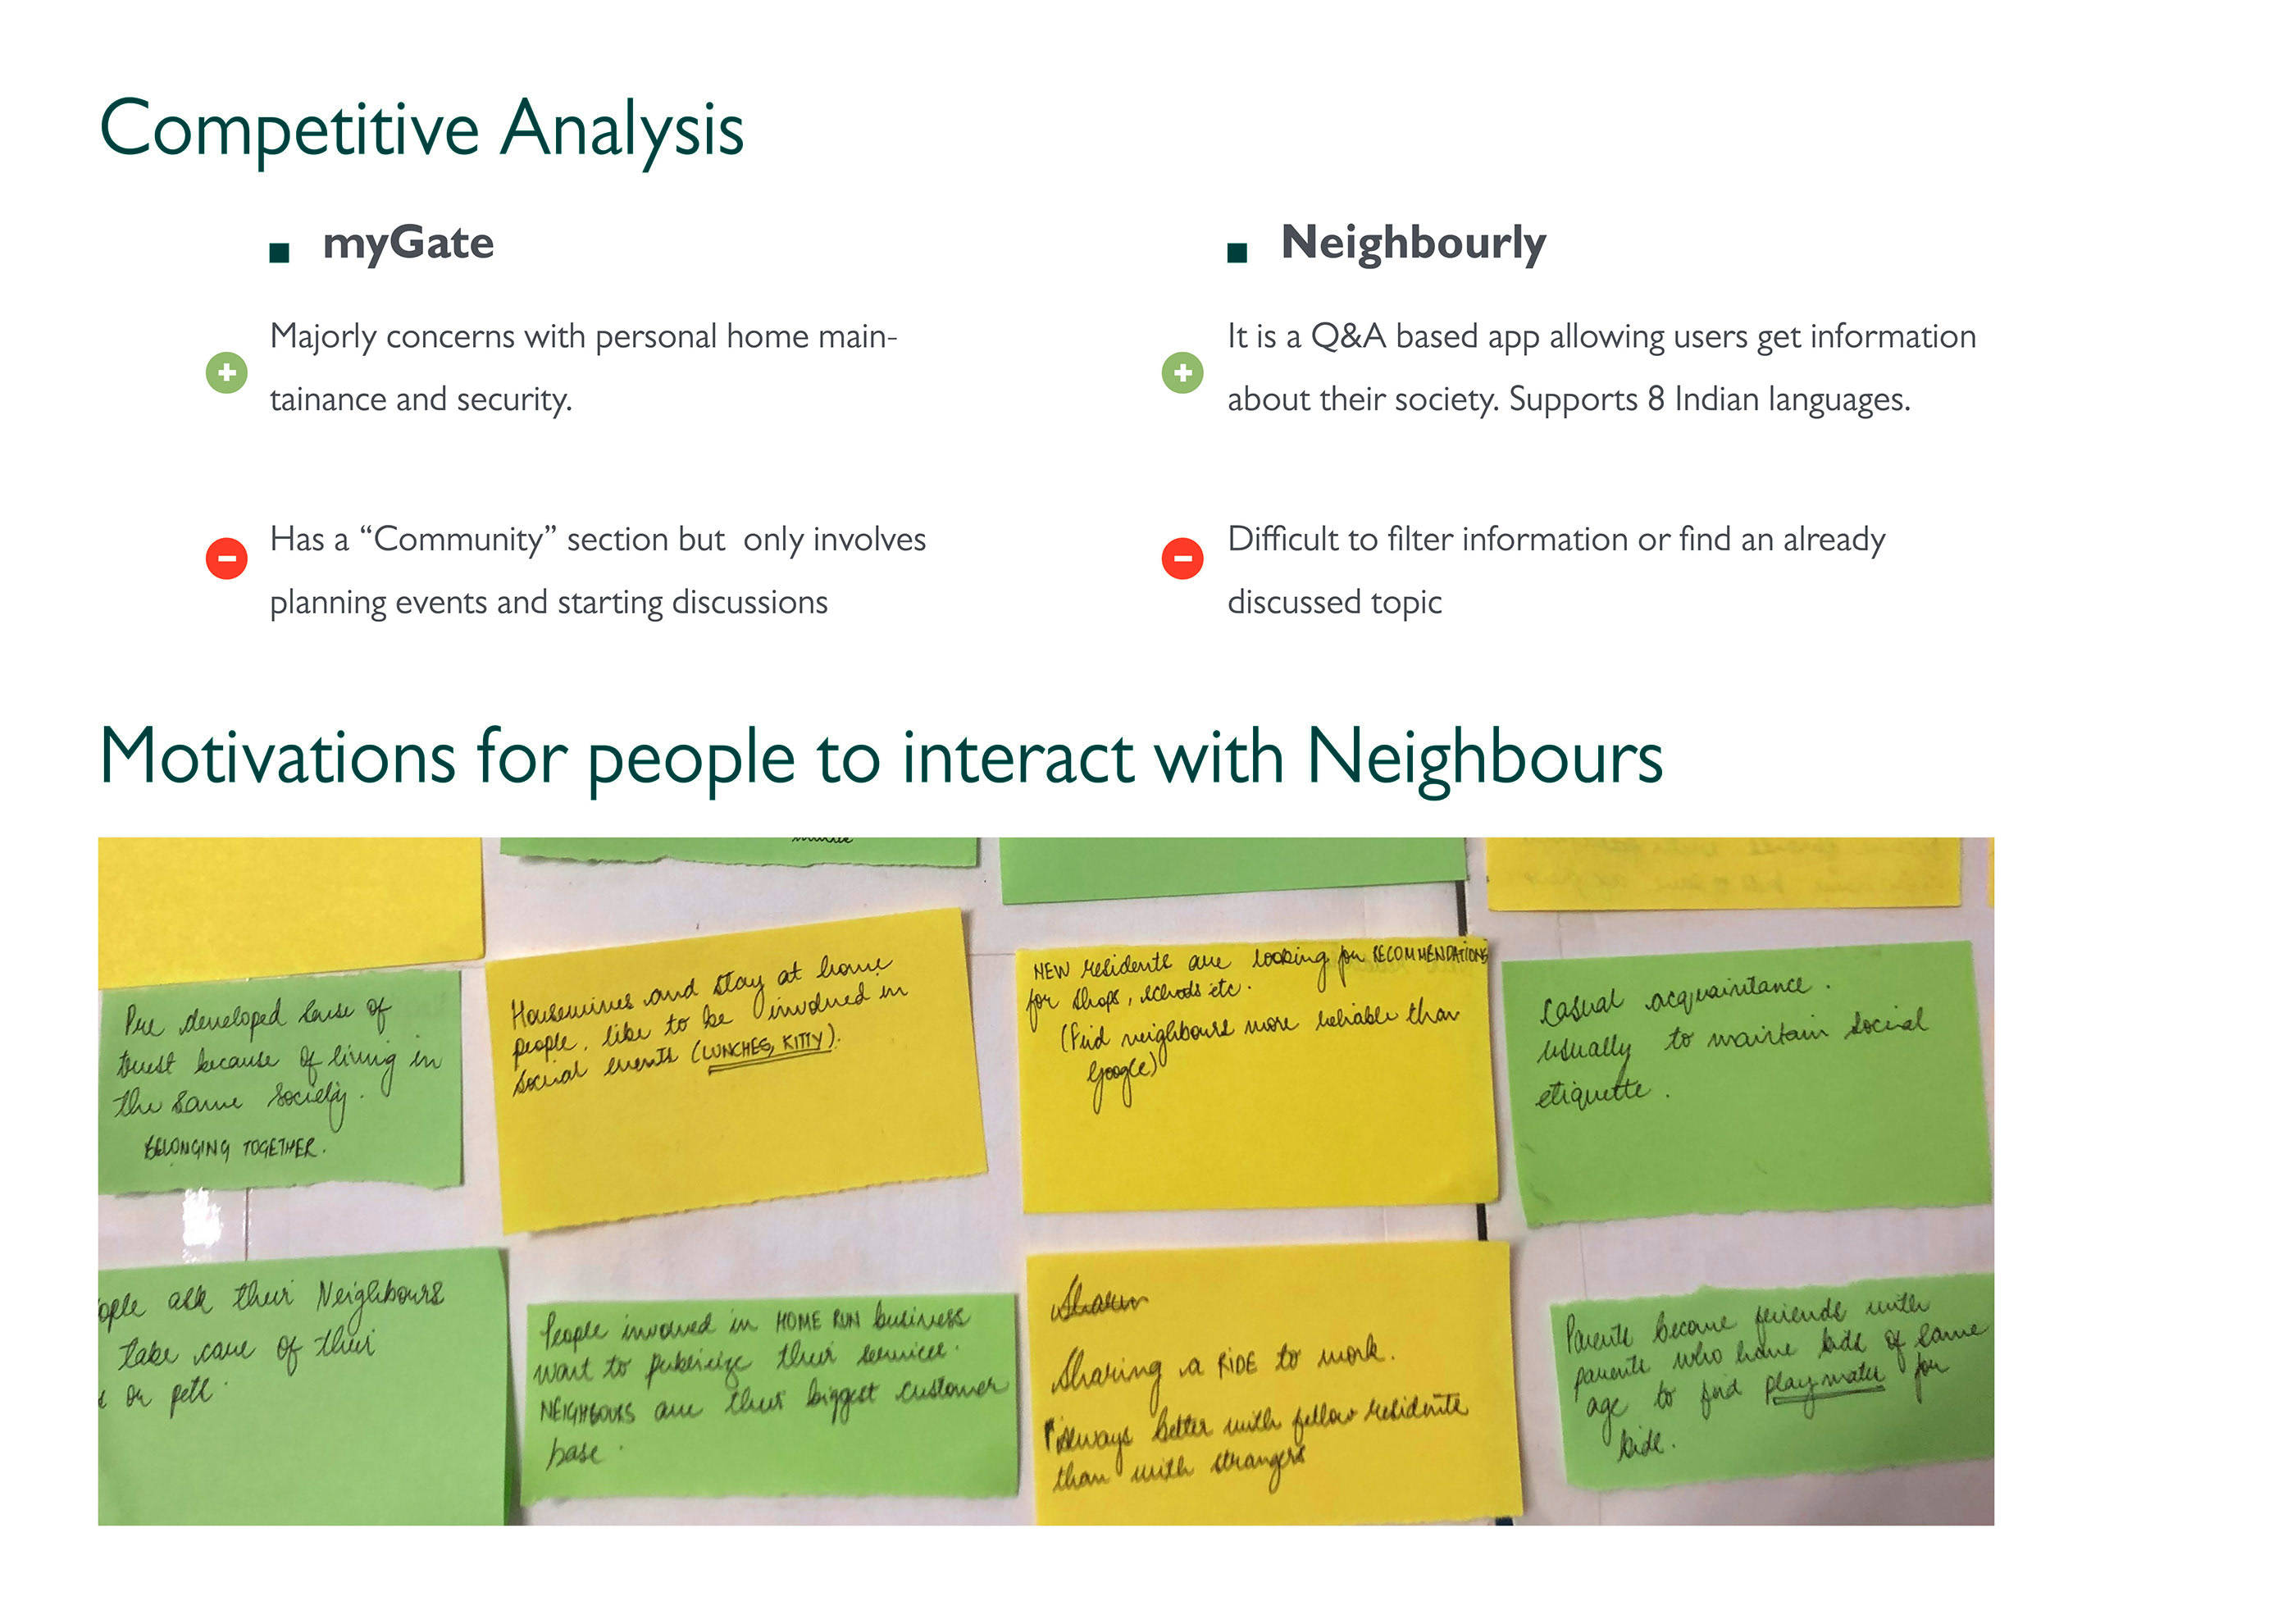 Competitive Analysis
myGate
Majorly concerns with personal home main-
tainance and security.
Has a “Community” section but only involves
planning events and starting discussions
Neighbourly
It is a Q&A based app allowing users get information
about their society. Supports 8 Indian languages.
Difficult to filter information or find an already
discussed topic
Motivations for people to interact with Neighbours
Pre developed sense of
trust because of living in
the same society.
BELONGING TOGETHER.
Housewives and stay at home
people, like to be involved in
social events (LUNCHES, KITTY).
NEW residents are looking for RECOMMENDATIONS
for shops, schools etc.
(Find neighbours more reliable than
Google)
Casual acquaintance.
usually to maintain social
etiquette.
ople ask their Neighbours
take care of their
or pets.
People involved in HOME RUN business
want to publicize their services.
NEIGHBOURS are their biggest customer
base.
Sharing a RIDE to work.
Always better with fellow residents
than with strangers
Parents become friends with
parents who have kids of same
age to find playmates for
kids.